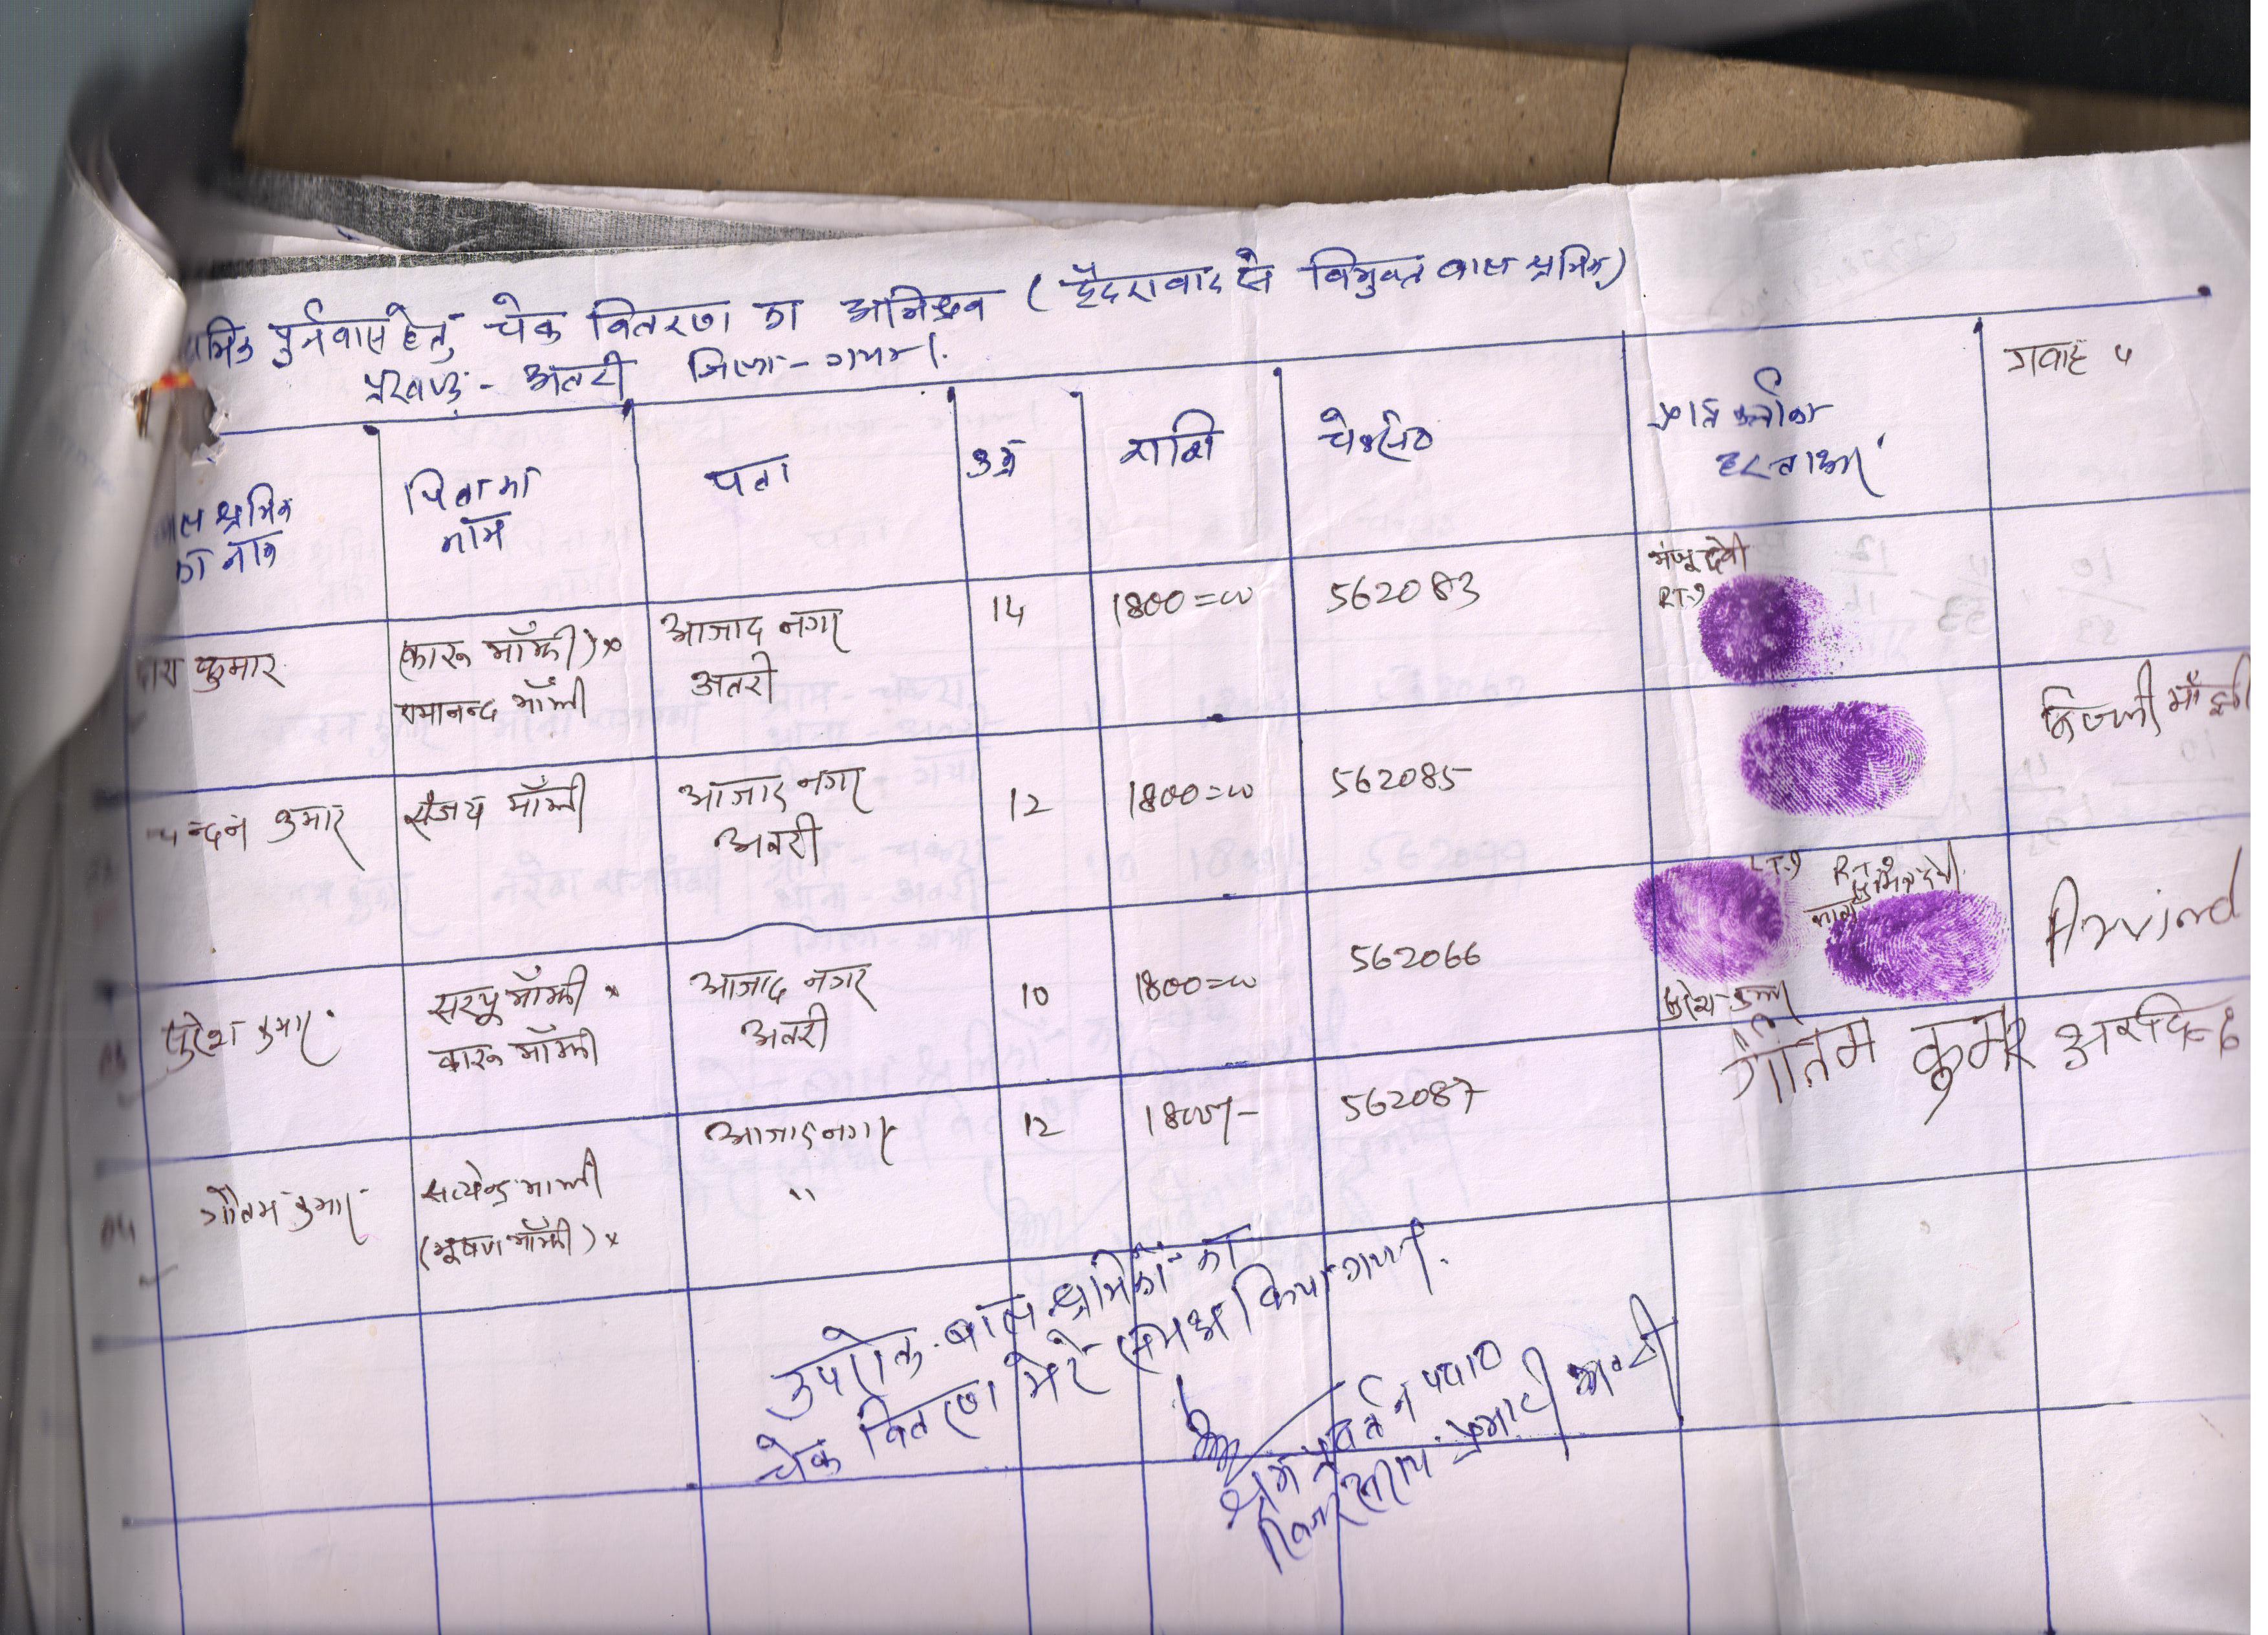 श्रमिक पुर्नवास हेतु चेक वितरण का अभिश्रव (हैदरावाद से विमुक्त बाल श्रमिक)
प्रखण्ड - अतरी जिला - गया।
बाल श्रमिक का नाम
पिता का नाम
पता
उम्र
राशि
चेक सं०
प्राप्तकर्ता का हस्ताक्षर
गवाह
कुमार
(कारू माँझी) x
रामानन्द माँझी
आजाद नगर
अतरी
14
1800=00
562083
मंजू देवी
RT-9
चन्दन कुमार
संजय माँझी
आजाद नगर
अतरी
12
1800=00
562085
बिजली माँझी
सुरेश कुमार
सरयू माँझी x
कारू माँझी
आजाद नगर
अतरी
10
1800=00
562066
LT-9
RT-9
सुरेश कुमार
Arvind
गौतम कुमार
सत्येन्द्र माँझी
(भूषण माँझी) x
आजाद नगर
"
12
1800/-
562087
गौतम कुमार
अरविन्द
उपरोक्त बाल श्रमिकों का
चेक वितरण मेरे समक्ष किया गया।
श्रम प्रवर्तन पदा०
प्रभारी अतरी